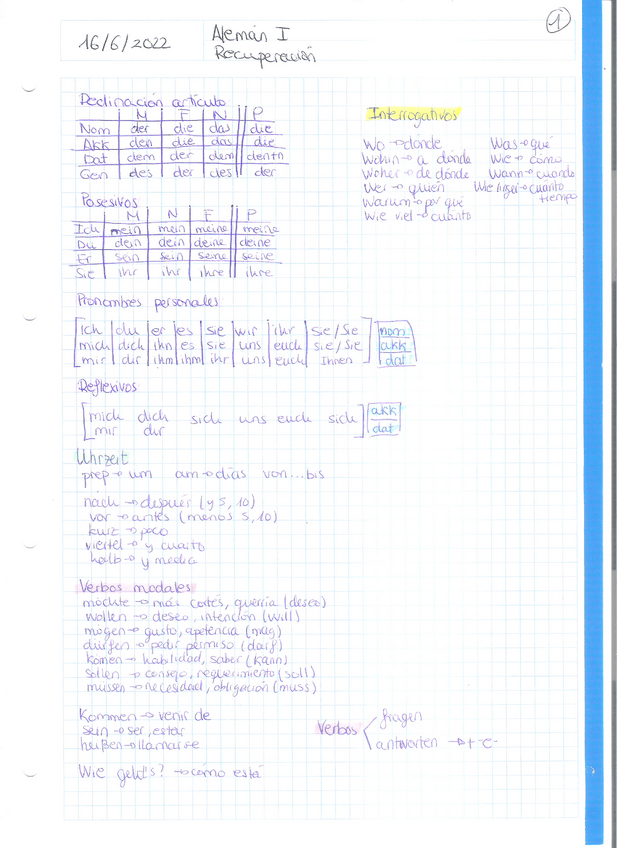 1
16/6/2022
Alemán I
Recuperación
Declinación artículo
M F N P
Nom der die das die
Akk den die das die
Dat dem der dem den+n
Gen des der des der
Posesivos
M N F P
Ich mein mein meine meine
Du dein dein deine deine
Er sein sein seine seine
Sie ihr ihr ihre ihre
Pronombres personales
Ich du er es sie wir ihr sie/Sie nom
mich dich ihn es sie uns euch sie/Sie akk
mir dir ihm ihm ihr uns euch Ihnen dat
Reflexivos
mich dich sich uns euch sich akk
mir dir dat
Uhrzeit
prep → um am → días von...bis
nach → después (y 5, 10)
vor → antes (menos 5, 10)
kurz → poco
viertel → y cuarto
halb → y media
Verbos modales
möchte → más cortés, querría (deseo)
wollen → deseo, intención (will)
mögen → gusto, apetencia (mag)
dürfen → pedir permiso (darf)
können → habilidad, saber (kann)
sollen → consejo, requerimiento (soll)
mussen → necesidad, obligación (muss)
Kommen → venir de
sein → ser, estar
heißen → llamarse
Wie geht's? → cómo está
Interrogativos
Wo → dónde Was → qué
Wohin → a dónde Wie → cómo
Woher → de dónde Wann → cuándo
Wer → quién Wie lange → cuánto tiempo
Warum → por qué
Wie viel → cuánto
Verbos
fragen
antworten → + -e-